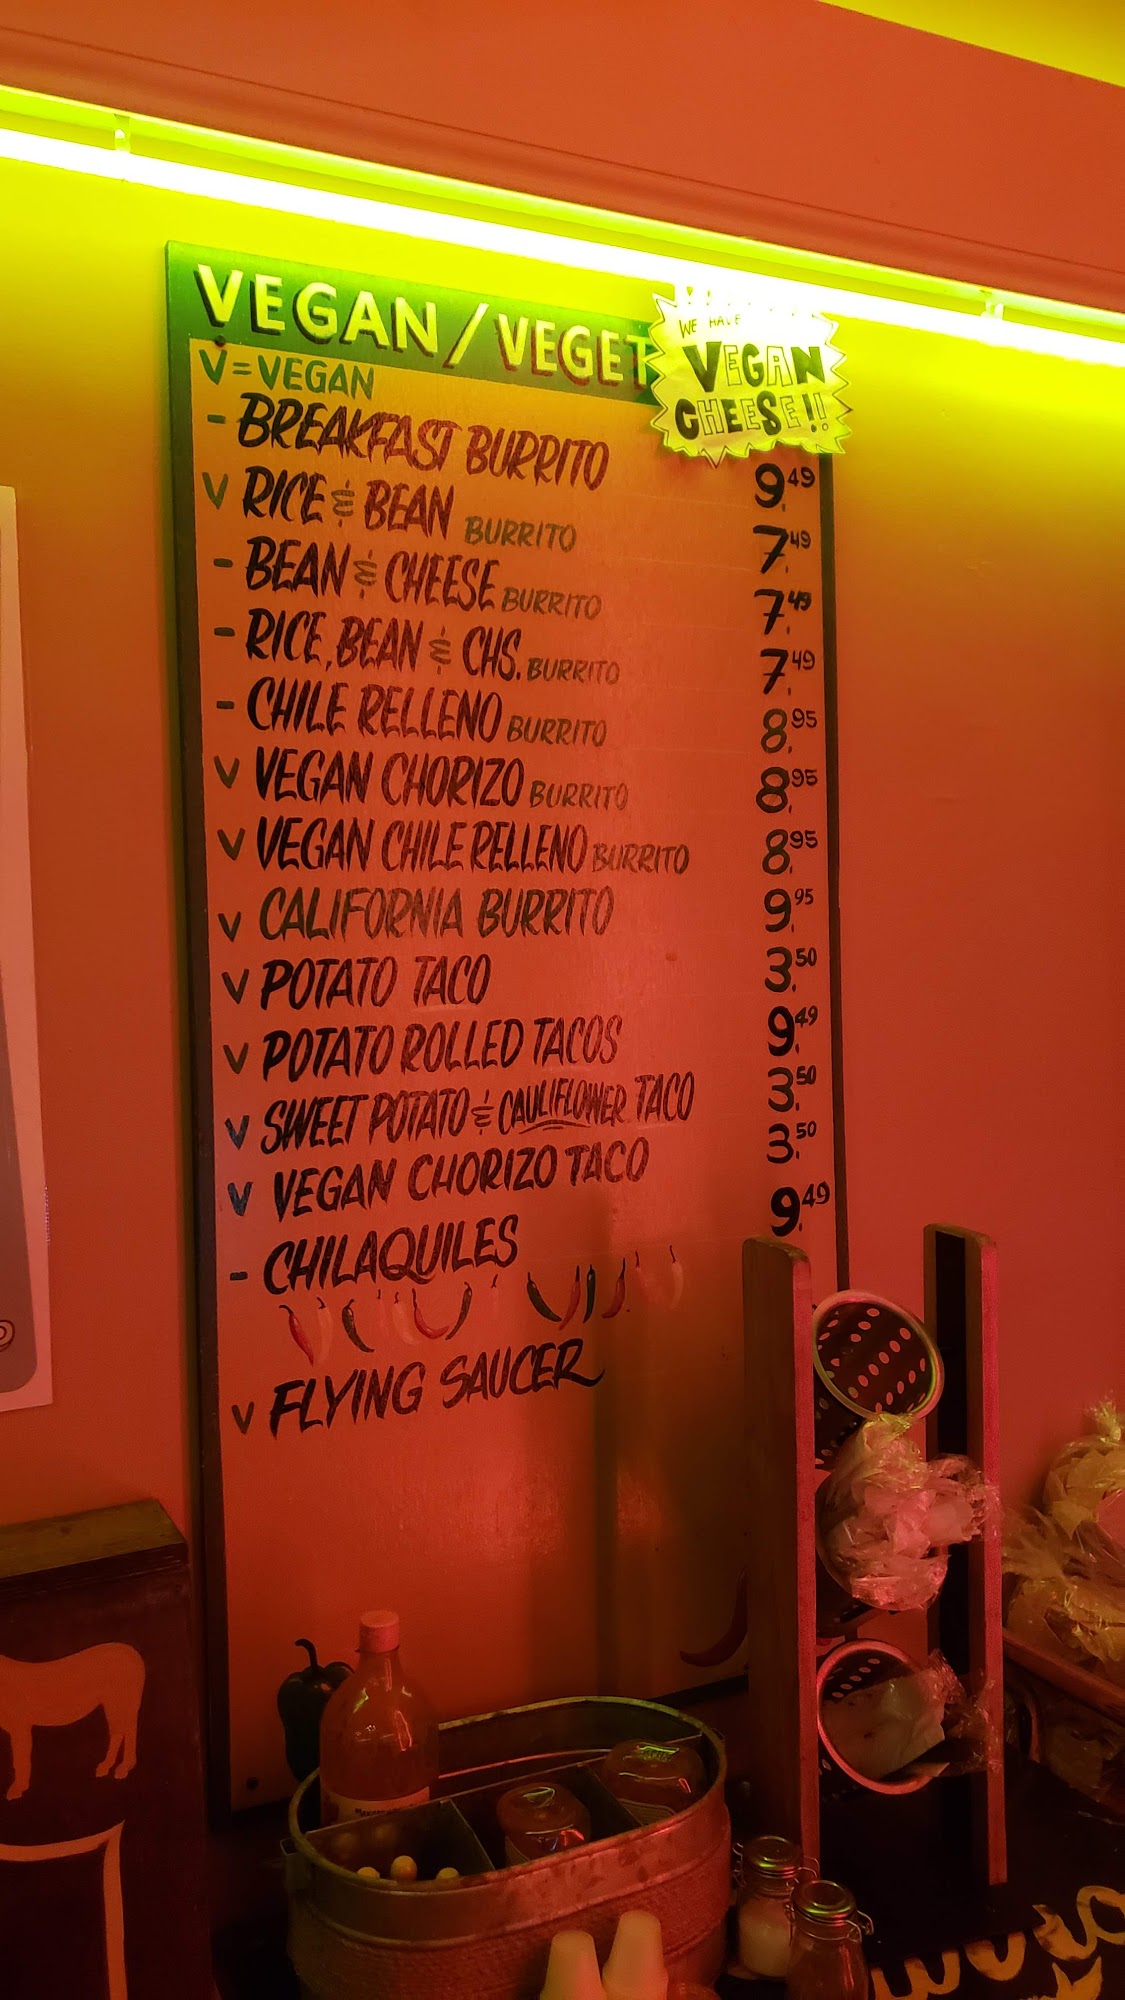 VEGAN / VEGET
WE HAVE
VEGAN
CHEESE!!
V = VEGAN
- BREAKFAST BURRITO 9.49
V RICE & BEAN BURRITO 7.49
- BEAN & CHEESE BURRITO 7.49
- RICE, BEAN & CHS. BURRITO 7.49
- CHILE RELLENO BURRITO 8.95
V VEGAN CHORIZO BURRITO 8.95
V VEGAN CHILE RELLENO BURRITO 8.95
V CALIFORNIA BURRITO 9.95
V POTATO TACO 3.50
V POTATO ROLLED TACOS 9.49
V SWEET POTATO & CAULIFLOWER TACO 3.50
V VEGAN CHORIZO TACO 3.50
- CHILAQUILES 9.49
V FLYING SAUCER